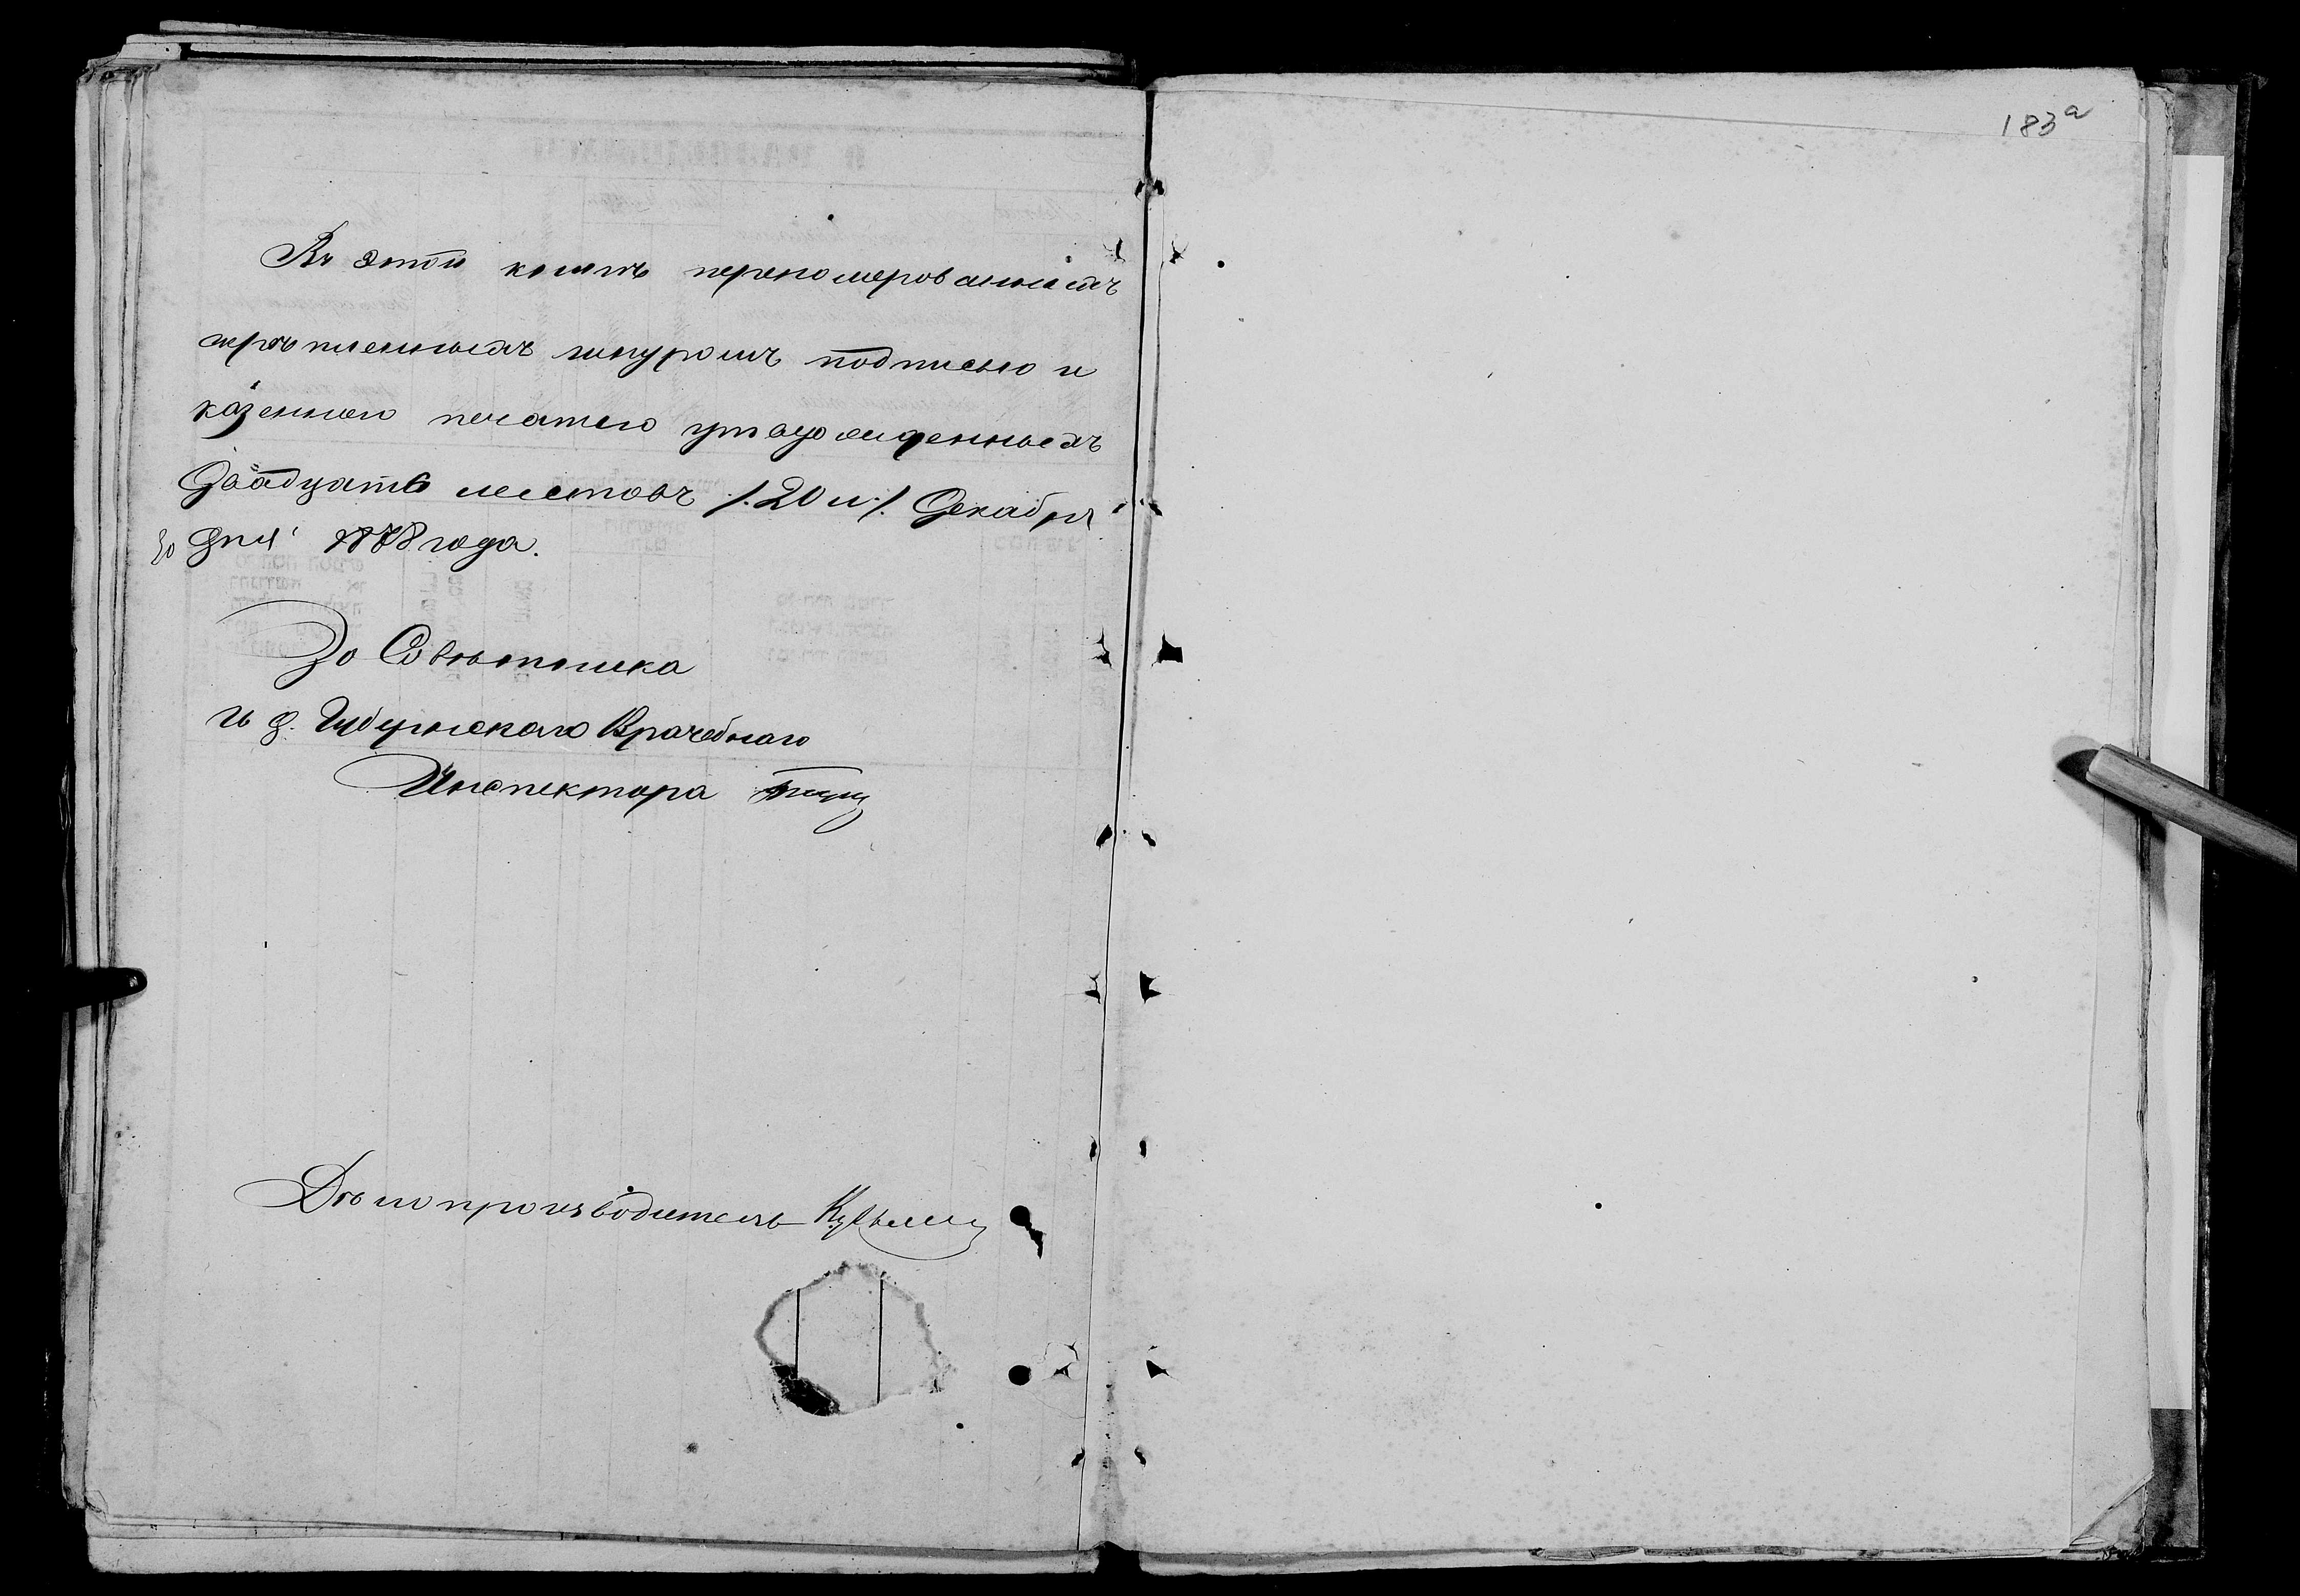 183а
Въ этой книгѣ перенумерованныхъ
скрѣпленныхъ шнуромъ подписью и
казенною печатью утвержденныхъ
Двадцать листовъ /.20 л./. Декабря
30 дня 1878 года.
За Совѣтника
И д. Губернскаго Врачебнаго
Инспектора
Дѣлопроизводитель